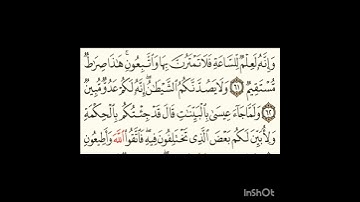 وَإِنَّهُۥ لَعِلْمٌ لِّلسَّاعَةِ فَلَا تَمْتَرُنَّ بِهَا وَٱتَّبِعُونِ ۚ هَٰذَا صِرَٰطٌ
مُّسْتَقِيمٌ ٦١ وَلَا يَصُدَّنَّكُمُ ٱلشَّيْطَٰنُ ۖ إِنَّهُۥ لَكُمْ عَدُوٌّ مُّبِينٌ
٦٢ وَلَمَّا جَآءَ عِيسَىٰ بِٱلْبَيِّنَٰتِ قَالَ قَدْ جِئْتُكُم بِٱلْحِكْمَةِ
وَلِأُبَيِّنَ لَكُم بَعْضَ ٱلَّذِى تَخْتَلِفُونَ فِيهِ ۖ فَٱتَّقُوا۟ ٱللَّهَ وَأَطِيعُونِ
InShOt